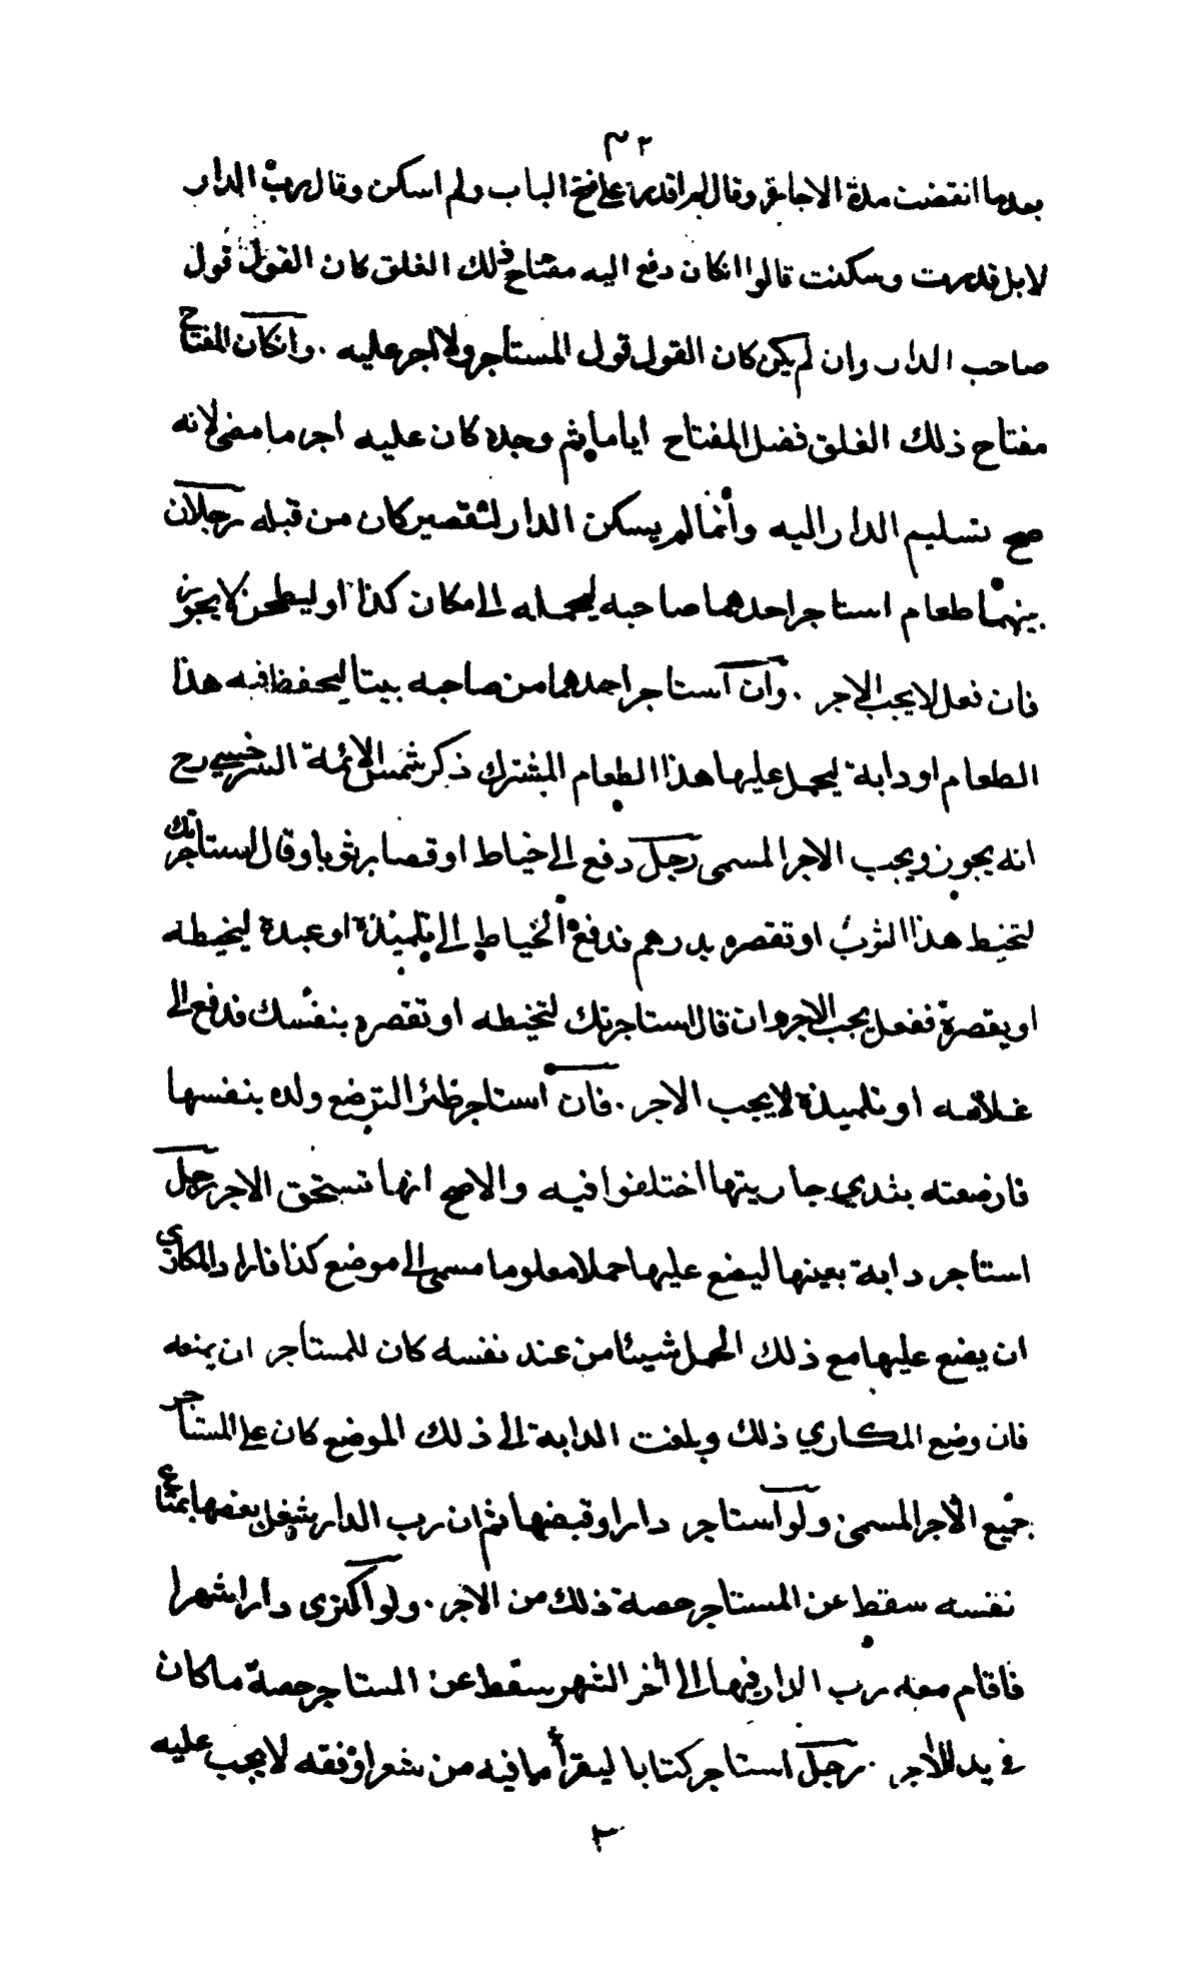 ٤٢
بعد ما انقضت مدة الاجارة وقال لم اقدر على فتح الباب ولم اسكن وقال رب الدار
لا بل قدرت وسكنت قالوا انكان دفع اليه مفتاح ذلك الغلق كان القول قول
صاحب الدار وان لم يكن كان القول قول المستأجر ولا اجر عليه . وانكان المفتاح
مفتاح ذلك الغلق فضل المفتاح اياما ثم وجده كان عليه اجر ما مضى لانه
صح تسليم الدار اليه وأنما لم يسكن الدار لتقصير كان من قبله رجلان
بينهما طعام استاجر احدهما صاحبه ليحمله الى مكان كذا او ليطحن لا يجوز
فان فعل لا يجب الاجر . وان آستاجر احدهما من صاحبه بيتا ليحفظ فيه هذا
الطعام او دابة ليحمل عليها هذا الطعام المشترك ذكر شمس الائمة السرخسي رح
انه يجوز ويجب الاجر المسمى رجل دفع الى خياط او قصار ثوبا وقال استأجرتك
لتخيط هذا الثوب او تقصره بدرهم فدفع الخياط الى تلميذة او عبدة ليخيطه
او يقصرة ففعل يجب الاجر وان قال استاجرتك لتخيطه او تقصره بنفسك فدفع الى
غلامه او تلميذة لا يجب الاجر . فان استاجر ظئرا لترضع ولده بنفسها
فارضعته بثدي جاريتها اختلفوا فيه والاصح انها تستحق الاجر رجل
استأجر دابة بعينها ليضع عليها حملا معلوما مسمى الى موضع كذا فاراد المكاري
ان يضع عليها مع ذلك الحمل شيئا من عند نفسه كان للمستأجر ان يمنعه
فان وضع المكاري ذلك وبلغت الدابة الى ذلك الموضع كان على المستأجر
جميع الأجر المسمى ولو آستاجر دارا وقبضها ثم ان رب الدار شغل بعضها بمتاع
نفسه سقط عن المستاجر حصة ذلك من الاجر . ولو اكترى دارا شهرا
فاقام معه رب الدار فيها الى أخر الشهر سقط عن المستاجر حصة ما كان
في يد الاجر . رجل استاجر كتابا ليقرأ ما فيه من شعر او فقه لا يجب عليه